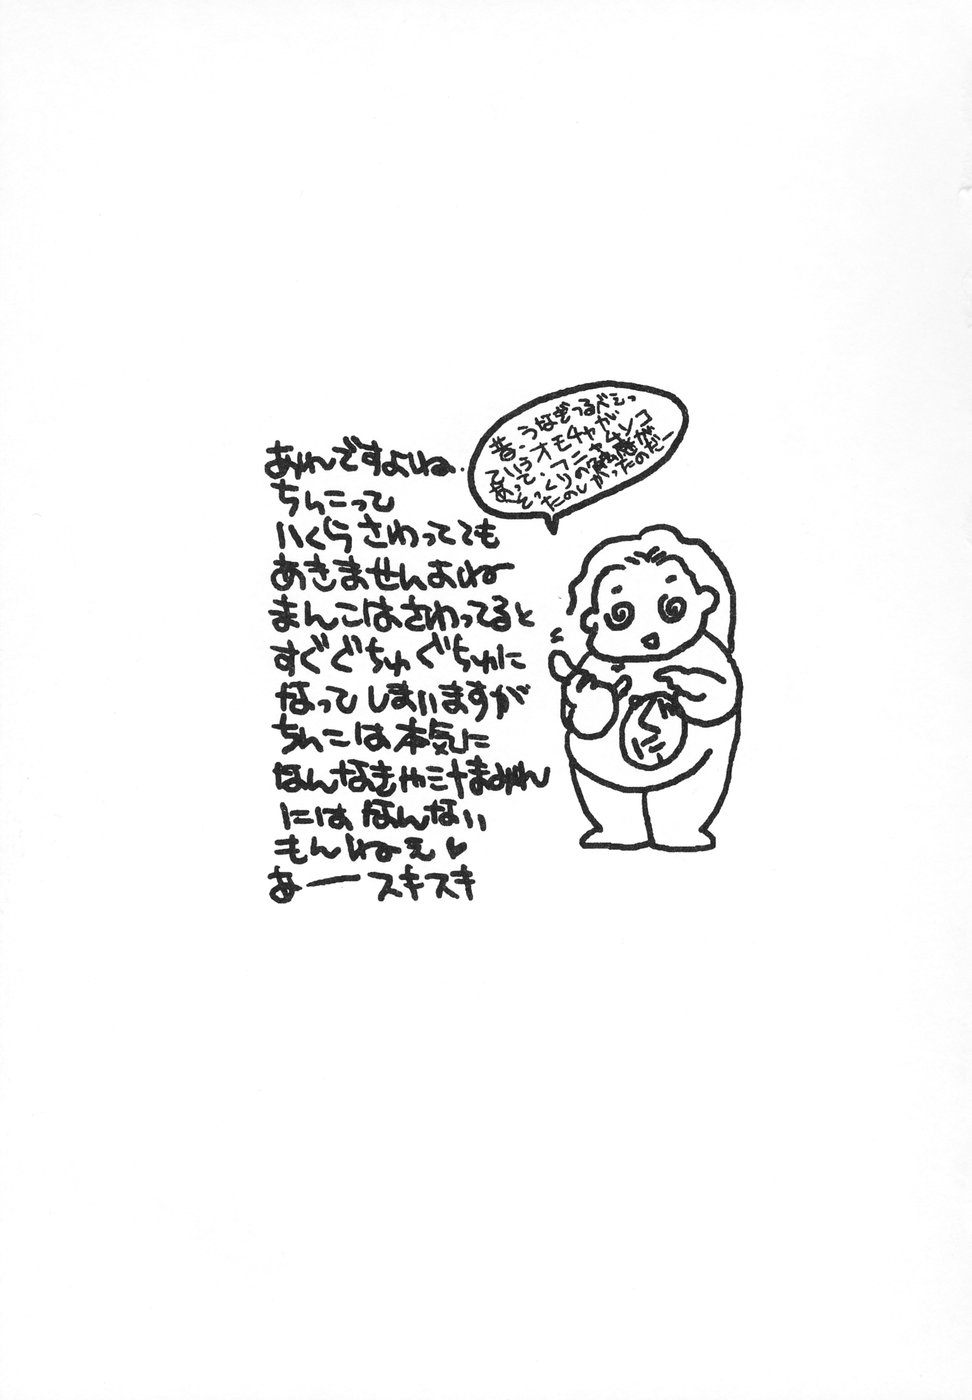 あれですよね..
ちんこって
いくらさわってても
あきませんよねー
まんこはさわってると
すぐぐちゅぐちゅに
なってしまいますが
ちんこは本気に
なんなきゃ汁まみれ
にはなんない
もんねぇ♥
あースキスキ
昔、うなぞうるべしっ
ていうオモチャが
あって、フニャムンコ
そっくりの触感が
たのしかったのだー